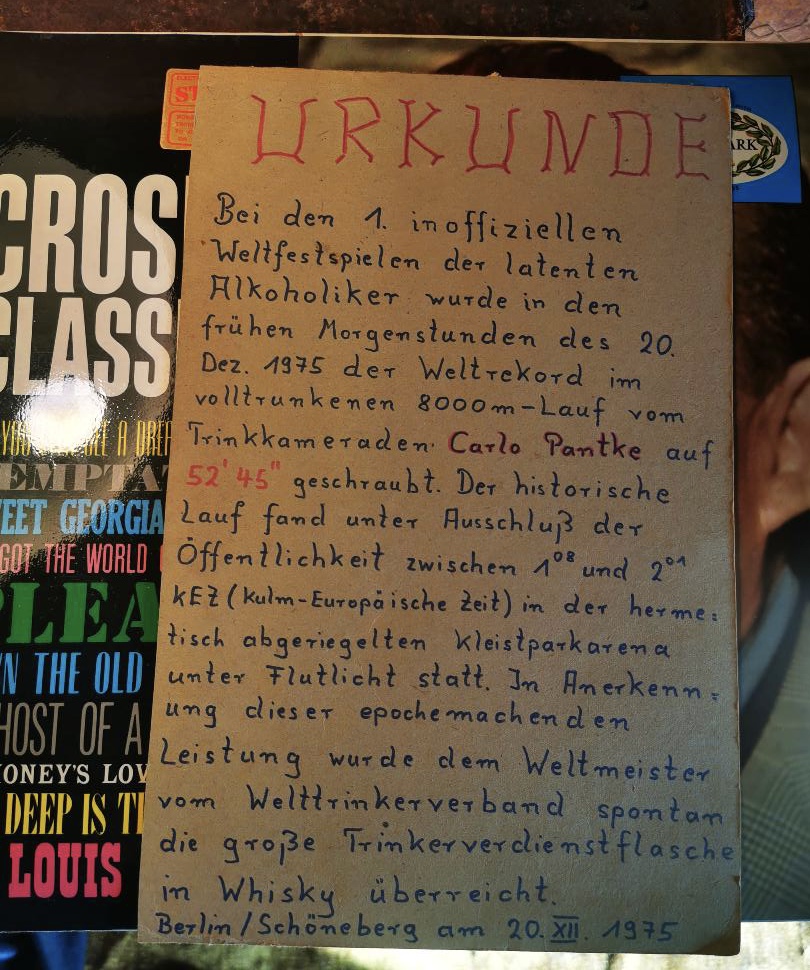 URKUNDE
Bei den 1. inoffiziellen
Weltfestspielen der latenten
Alkoholiker wurde in den
frühen Morgenstunden des 20.
Dez. 1975 der Weltrekord im
volltrunkenen 8000m-Lauf vom
Trinkkameraden Carlo Pantke auf
52' 45" geschraubt. Der historische
Lauf fand unter Ausschluß der
Öffentlichkeit zwischen 1⁰⁸ und 2⁰¹
KEZ (Kulm-Europäische Zeit) in der herme=
tisch abgeriegelten Kleistparkarena
unter Flutlicht statt. In Anerkenn=
ung dieser epochemachenden
Leistung wurde dem Weltmeister
vom Welttrinkerverband spontan
die große Trinkerverdienstflasche
in Whisky überreicht.
Berlin/Schöneberg am 20. XII. 1975
CROS
CLASS
YOU SEE A DRE
EMPTAT
EET GEORGIA
GOT THE WORLD
PLEA
N THE OLD
HOST OF A
HONEY'S LOV
DEEP IS T
LOUIS
ST
ARK